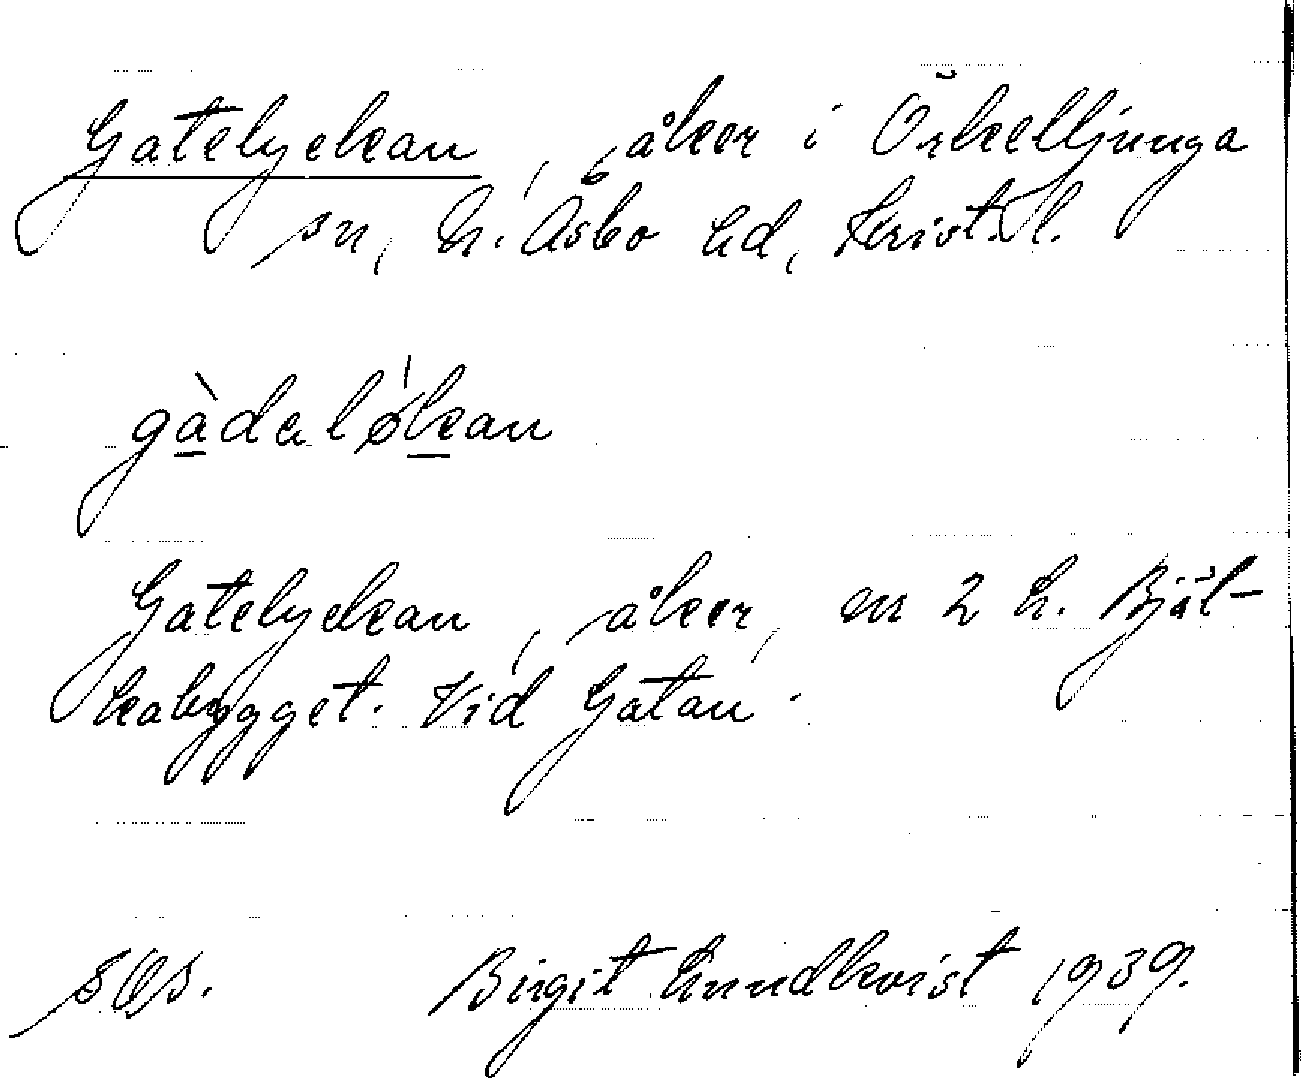 Gatelyckan, åker i Örkelljunga
sn, N. Åsbo hd, Krist. l.
gàdaló̷kan
Gatelyckan, åker, nr 2 N. Bjäl-
kabygget. Vid Gatan.
Birgit Lundkvist 1939.